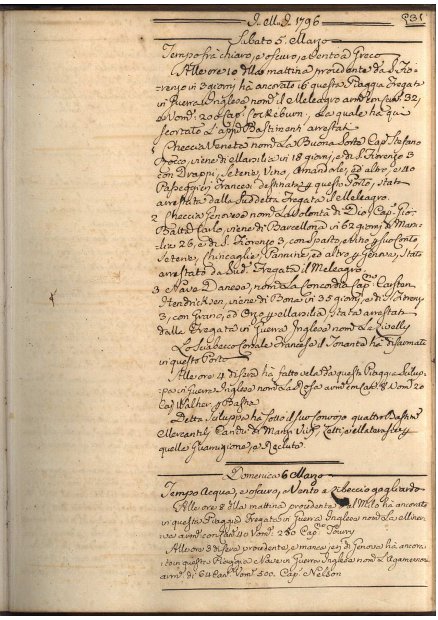 1796
231
Sabato 5. Marzo
Tempo frà chiaro, e oscuro, e Vento à Greco
Alle ore 10 della mattina procedente da S. Fio-
renzo in 3 giorni hà ancorato in questa Piaggia Fregata
in Guerra Inglese nom. il Meleagro arm. 32,
e Vom. 20 Cap. Cockburn, La quale hà quì
scortato L' app. Bastimenti arrestati
1 Checcia Veneta nom. La Buona Sorte Cap. Stefano
viene di Marsilia in 18 giorni, e di S. Fiorenzo 3
con Drappi, Seterie, Vino, Amandole, ed altro, e 10
Passeggieri Francesi destinata questo Porto, stata
arrestata dalla Sud detta Fregata il Meleagro.
2 Checcia Genovese nom. La Volontà di Dio, Cap. Gio:
Batta Carlo, viene di Barcellona in 62 giorni, e di
26, e di S. Fiorenzo 3, con Sparto, e Vino
Seterie, Chincaglie, Pannine, ed altro Genova, Stata
arrestato da Sud. Fregata il Meleagro.
3 Nave Danese, nom. La Concordia Cap. Carsten
Hendricksen, viene di Bona in 35 giorni, e di S. Fiorenzo
3, con Grano, ed Orzo Marsilia, Stata arrestata
dalla Fregata in Guerra Inglese nom. La
Lo Sciabecco Corsale Francese il Sonante hà disarmato
in questo Porto
Alle ore 4 di Sera hà fatto vela da questa Piaggia Scilup-
pa in Guerra Inglese nom. La Rosa arm. 8 Vom. 20
Cap. Walker, Bastia
Detta Sciluppa hà sotto il suo convojo quattro Bastim.
Mercantil,
quella Guarnigione, e Reclute.
Domenica 6 Marzo
Tempo Acqua, e oscuro, e Vento a Libeccio gagliardo
Alle ore 8 della mattina procedente dal Milo hà ancorato
in questa Piaggia Fregata in Guerra Inglese nom. La Miner-
va arm. con Can. 40 Vom. 280 Cap.
Alle ore 3 di Sera procedente, e manca jeri di Genova hà ancora-
to in questa Piaggia Nave in Guerra Inglese nom. L'Agamennone
arm. di 64 Can. Vom. 500. Cap. Nelson